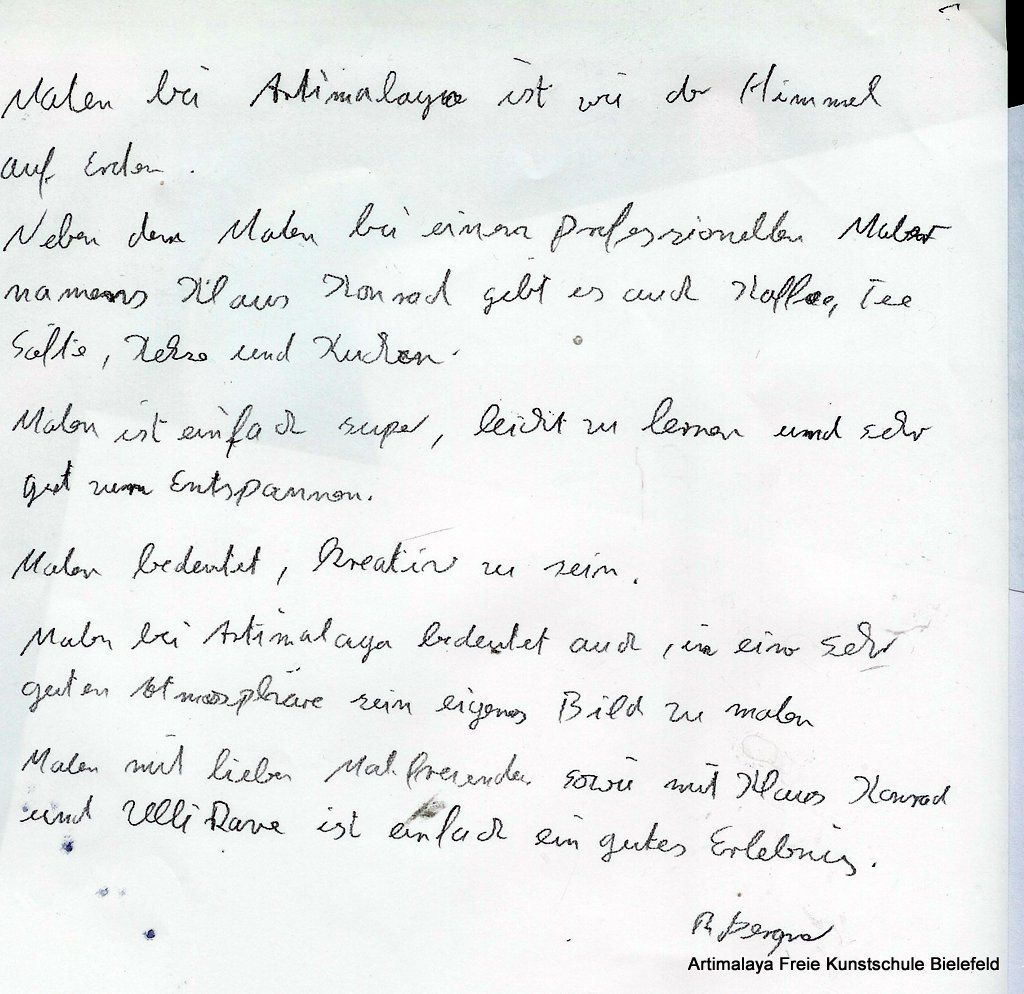 Malen bei Artimalaya ist wie der Himmel
auf Erden.
Neben dem Malen bei einem professionellen Maler
namens Klaus Konrad gibt es auch Kaffee, Tee
Säfte, Kekse und Kuchen.
Malen ist einfach super, leicht zu lernen und sehr
gut zum Entspannen.
Malen bedeutet, Kreativ zu sein.
Malen bei Artimalaya bedeutet auch, in einer sehr
guten Atmosphäre sein eigenes Bild zu malen
Malen mit lieben Malfreunden sowie mit Klaus Konrad
und Ulli Rave ist einfach ein gutes Erlebnis.
Artimalaya Freie Kunstschule Bielefeld